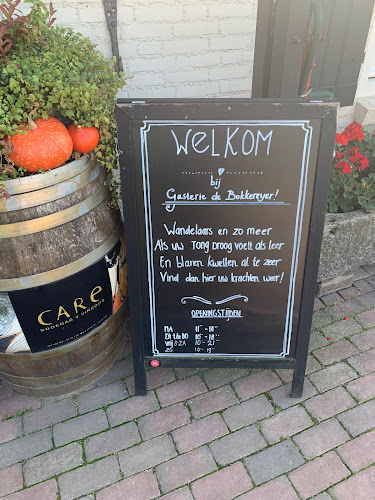 WELKOM
bij
Gasterie de Bokkereyer!
Wandelaars en zo meer
Als uw Tong Droog voelt als leer
En blaren kwellen al te zeer
Vind dan hier uw krachten weer!
OPENINGSTIJDEN
MA
Di t/m Do
Vrij & ZA
ZO
CARE
BODEGAS Y VIÑEDOS